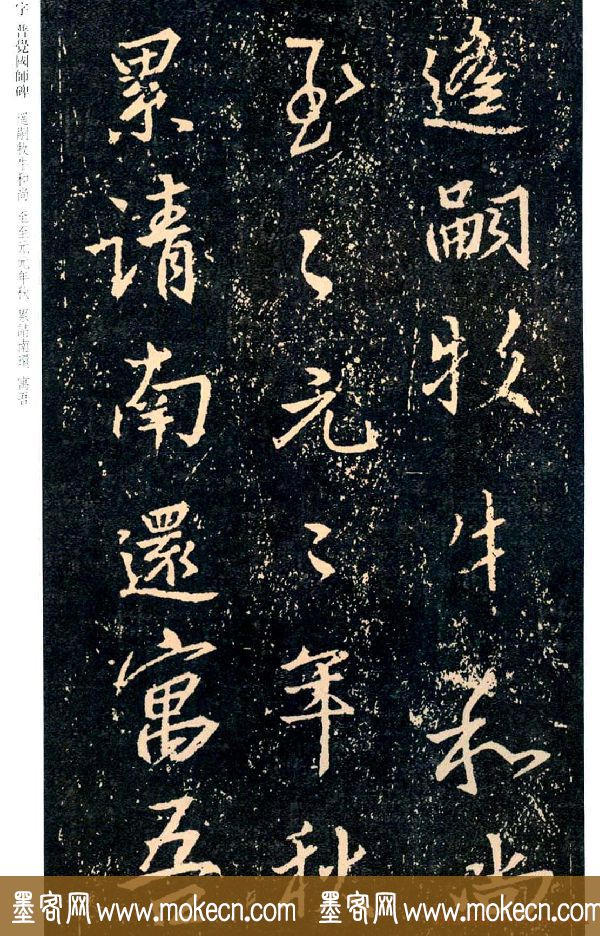 遙嗣牧牛和尚
至〻元〻年秋
累請南還寓吾
字 普覺國師碑 遙嗣牧牛和尚 至至元元年秋 累請南還 寓吾
墨客网 www.mokecn.com 墨客网 www.mokecn.com